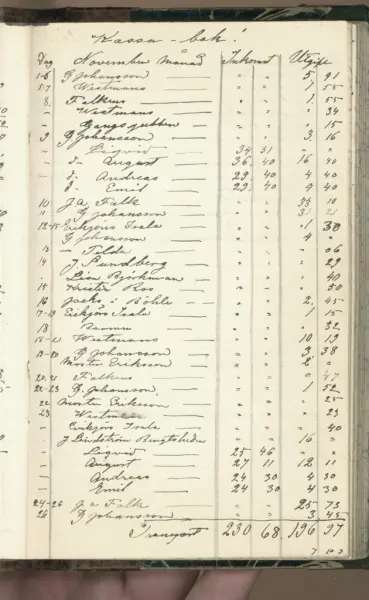 Kassa-bok!
Dag November Månad Inkomst Utgift
1-6 G Johansson — " " 5 91
5-7 Westmans — " " 1 55
8 Falkens — " " 1 55
- Westmans — " " " 34
- — " " " 15
9 G Johansson — " " 3 16
- Ligvid — 34 31 " "
- d- August — 36 40 16 40
d- Andreas — 29 40 4 40
d- Emil — 29 40 4 40
10 J A Falk — " " 33 10
11 G Johansson — " "
12-15 Erikjons Isala — " " 1 30
G Johansson — " " 4
13 — Tilda — " " " 06
14 J. Sundberg — " " " 29
- Lisa Björkman — " " " 40
15 Krister Ros — " " " 50
16 Jacks i Böhle — " " 2 45
17-19 Erikjons Isala — " " " 15
18 — " " " 32
18-21 Westmans — " " 10 19
19-20 G Johansson — " " 3 38
Morten Eriksson — " " 2 "
20,21 Falkens — " " " 47
22-23 G Johansson — " " 1 52
22 Morten Eriksson — " " " 25
23 Westmans — " " " 23
- Erikjons Isala — " " " 40
- J Lindström " " 16 "
- Ligvid — 25 46 " "
- August — 27 11 12 11
Andreas — 24 30 4 30
- Emil — 24 30 4 30
24-26 J A Falk — " " 25 73
26 G Johansson — " " 3 45
Transport 230 68 196 97